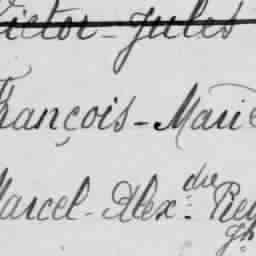 Victor-Jules
François-Marie
Marcel-Alex.dre